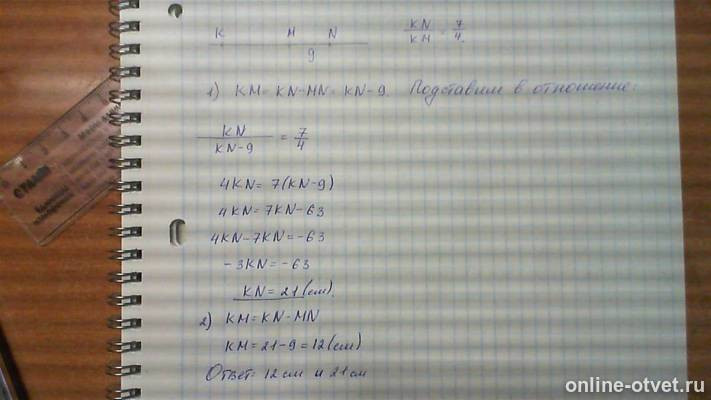 K M N KN/KM = 7/4.
9
1) KM = KN-MN = KN-9. Подставим в отношение:
KN/KN-9 = 7/4
4KN = 7(KN-9)
4KN = 7KN-63
4KN-7KN = -63
-3KN = -63
KN = 21(см).
2) KM = KN-MN
KM = 21-9 = 12(см)
Ответ: 12 см и 21 см
online-otvet.ru